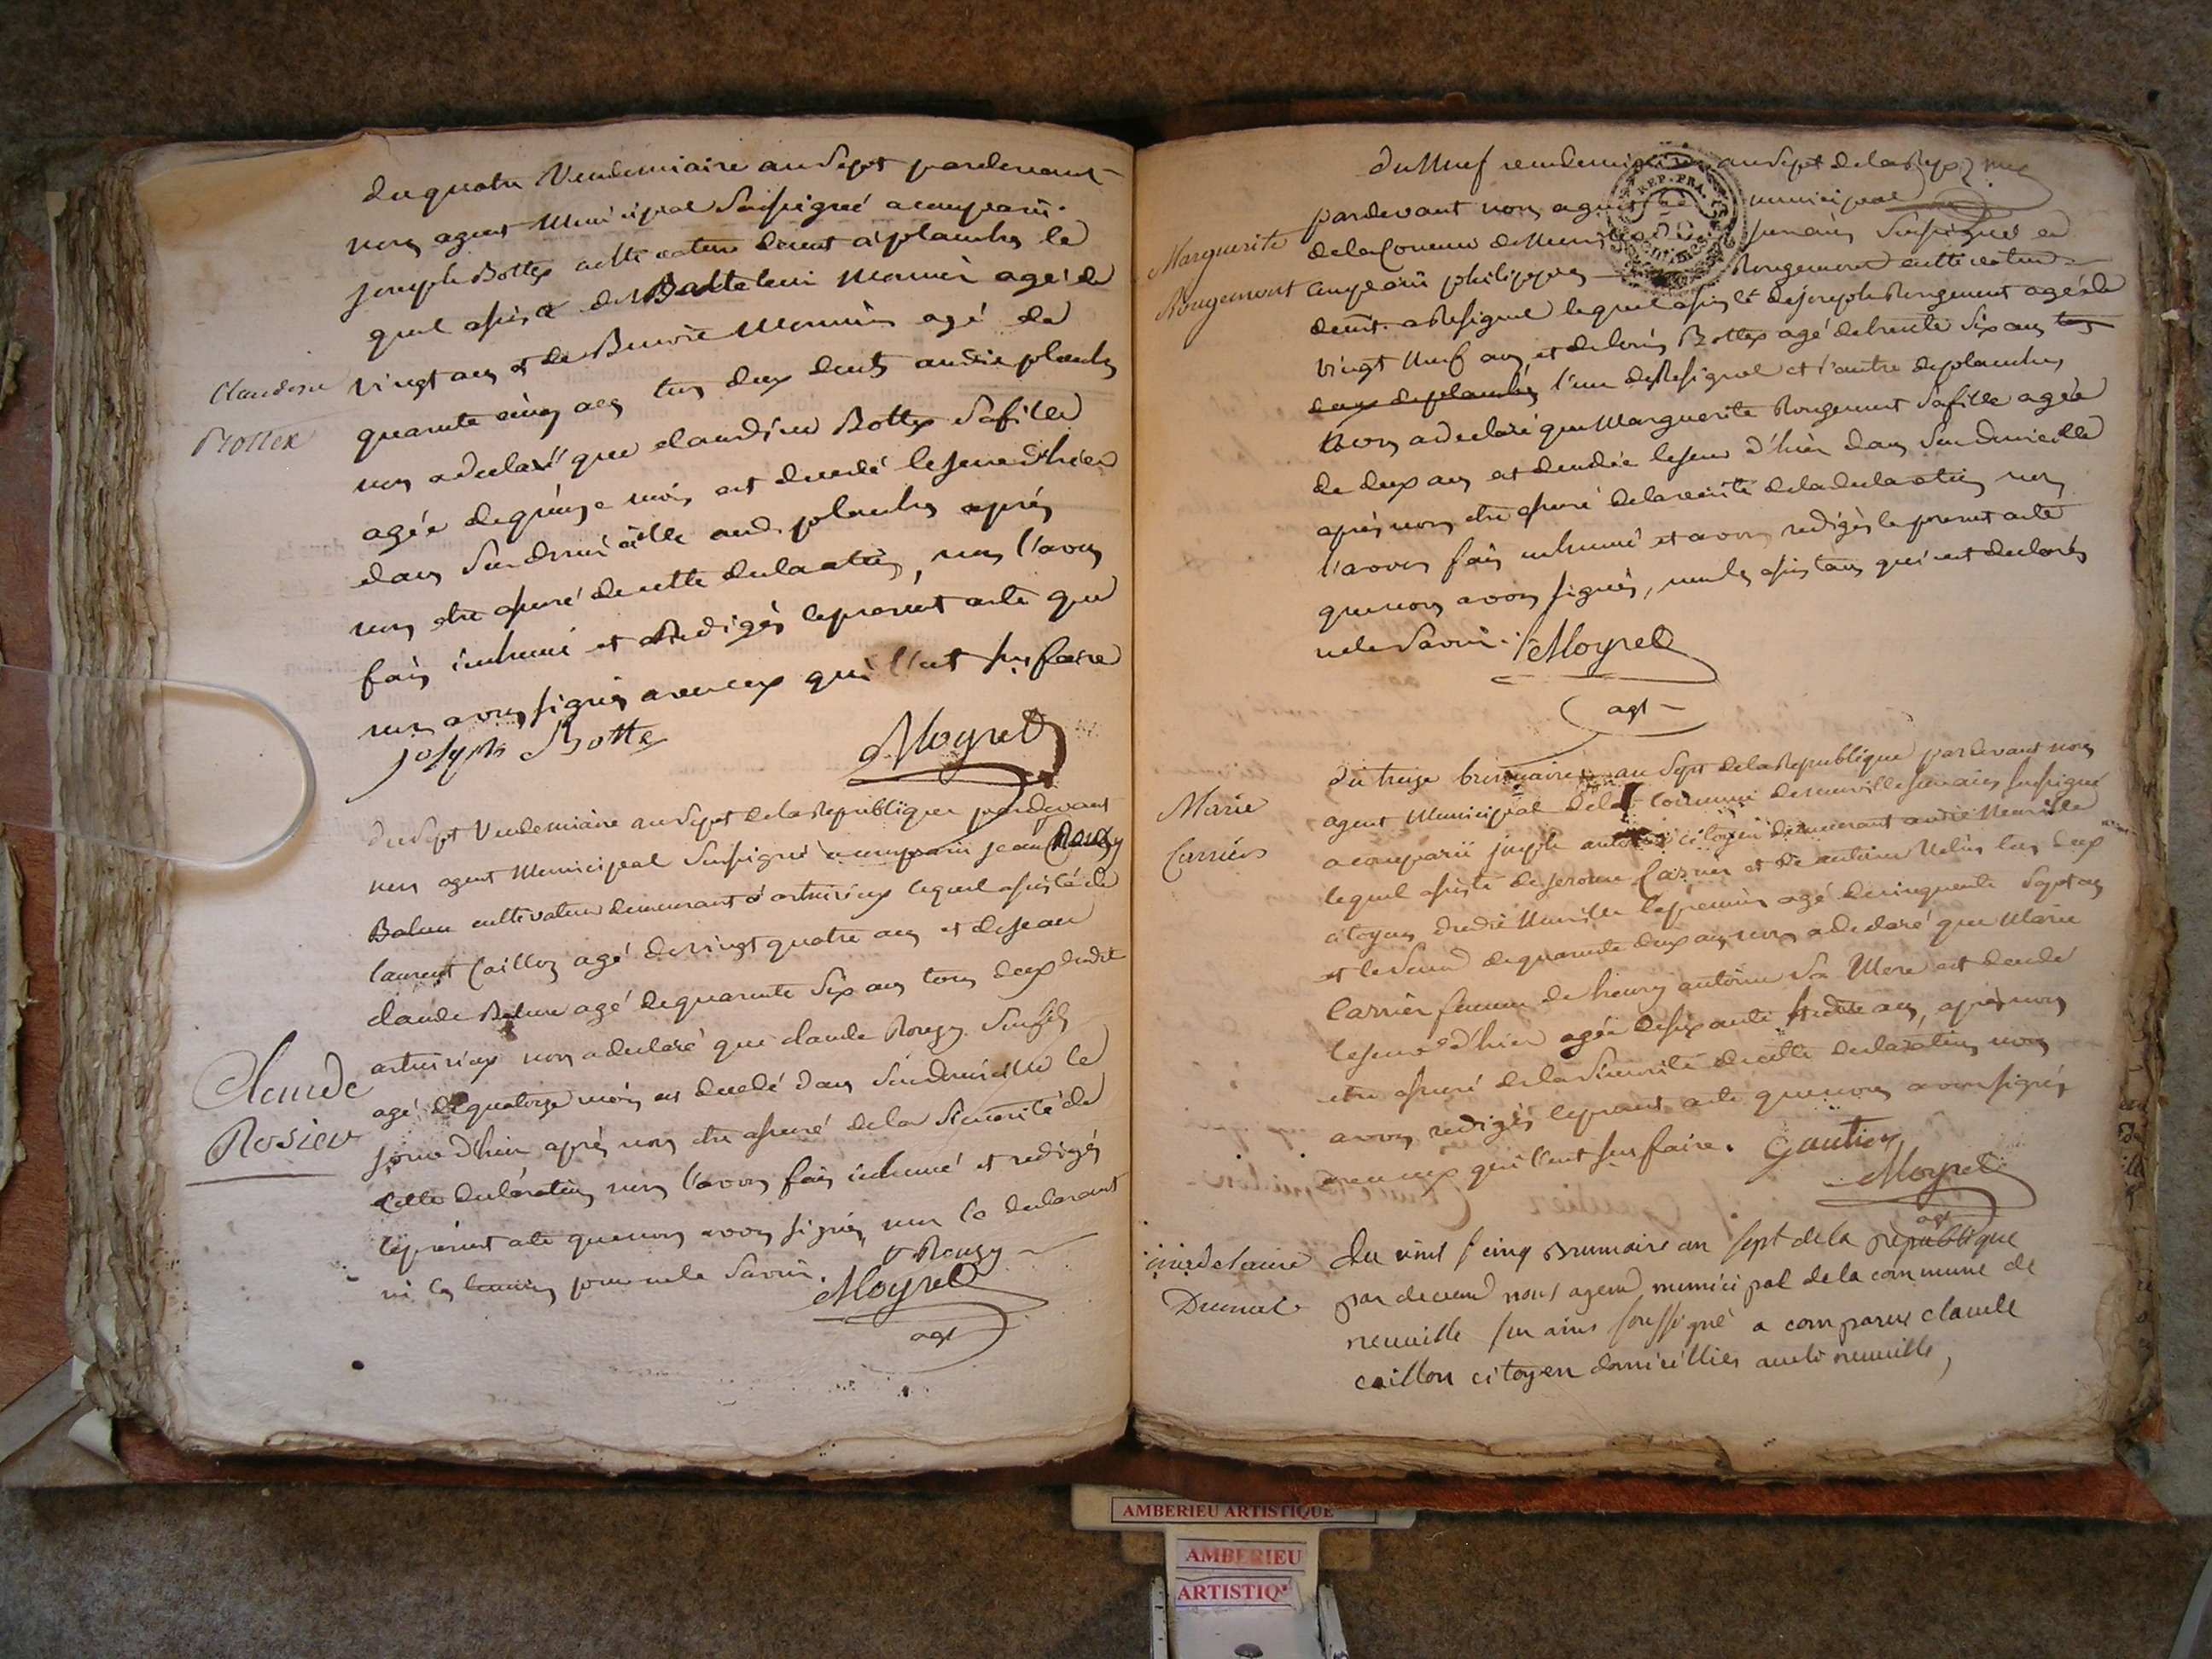 du quatre Vendemiaire an Sept pardevant
nous agent Municipal Soussigné a comparu
joseph Bottex cultivateur demt a planches le
quel assisté de Baltelmi Monnin agé de
Claudine
vingt ans et de Benoit Monnin agé de
Bottex
quarante cinq ans tous deux demts audit planches
nous a declaré que claudine Bottex Sa fille
agée de quinze mois est decedé le jour d'hier
dans Son domicille aud. planches après
nous etre assuré de cette declaration, nous l'avons
fais inhumé et Redigés le present acte que
nous avons signés avec ceux qui l'ont sus faire
joseph Botte
Moyret
du Sept Vendemiaire an Sept de la Republique pardevant
nous agent Municipal Soussigné a comparu jean Rougy
Balme cultivateur demeurant a arturieux lequel assisté de
laurent Caillon agé de vingt quatre ans et de jean
claude Balme agé de quarante Six ans tous deux dudit
arturieux nous a declaré que claude Rougy Son fils
Claude
agé de quatorze mois est decedé dans Son domicille le
Rosier
jour d'hier après nous etre assuré de la Sincerité de
cette declaration nous l'avons fais inhumé et redigés
le present acte que nous avons signés, non le declarant
ni les temoins pour ne le Savoir.
Rougy
Moyret
agt
du Neuf vendemiaire an Sept de la Rep.
pardevant nous agent municipal
Marguerite
de la Commune de Neuville Sur ain Soussigné est
Rougemont
comparu philippes Rougemont cultivateur
demt. a Resignel lequel assisté de joseph Rougemont agé de
vingt Neuf ans et de Bottex agé de trente Six ans tous
deux de planches l'un de Resignel et l'autre de planches
Nous a declaré que Marguerite Rougemont Sa fille agée
de deux ans est decedée le jour d'hier dans Son domicille
après nous etre assuré de la verité de la declaration nous
l'avons fais inhumé et avons redigés le present acte
que nous avons signés, non les assistans qui ont declarés
ne le Savoir. Moyret
agt
du treize brumaire an Sept de la Republique pardevant nous
Marie
agent Municipal de la Commune de neuville Sur ain Soussigné
Carrier
a comparu joseph antoine citoyen demeurant audit Neuville
lequel assisté de jerome Carrier et de antoine Velin tous deux
citoyens dudit Neuville le premier agé de cinquante Sept ans
et le Second de quarante deux ans nous a declaré que Marie
Carrier femme de henry antoine Sa Mere est decedé
le jour d'hier agée de soixante ans, après nous
etre assuré de la Sincerité de cette declaration nous
avons redigés le present acte que nous avons signés
avec ceux qui l'ont sus faire. Gautier
Moyret
agt
du vint cinq Brumaire an sept de la republique
Drumel
par devend nous agend municipal de la commune de
neuville sur ains soussigné a comparus claude
caillon citoyen domicilliés audit neuville,
REP. FRA.
AMBERIEU ARTISTIQUE
AMBERIEU
ARTISTIQ